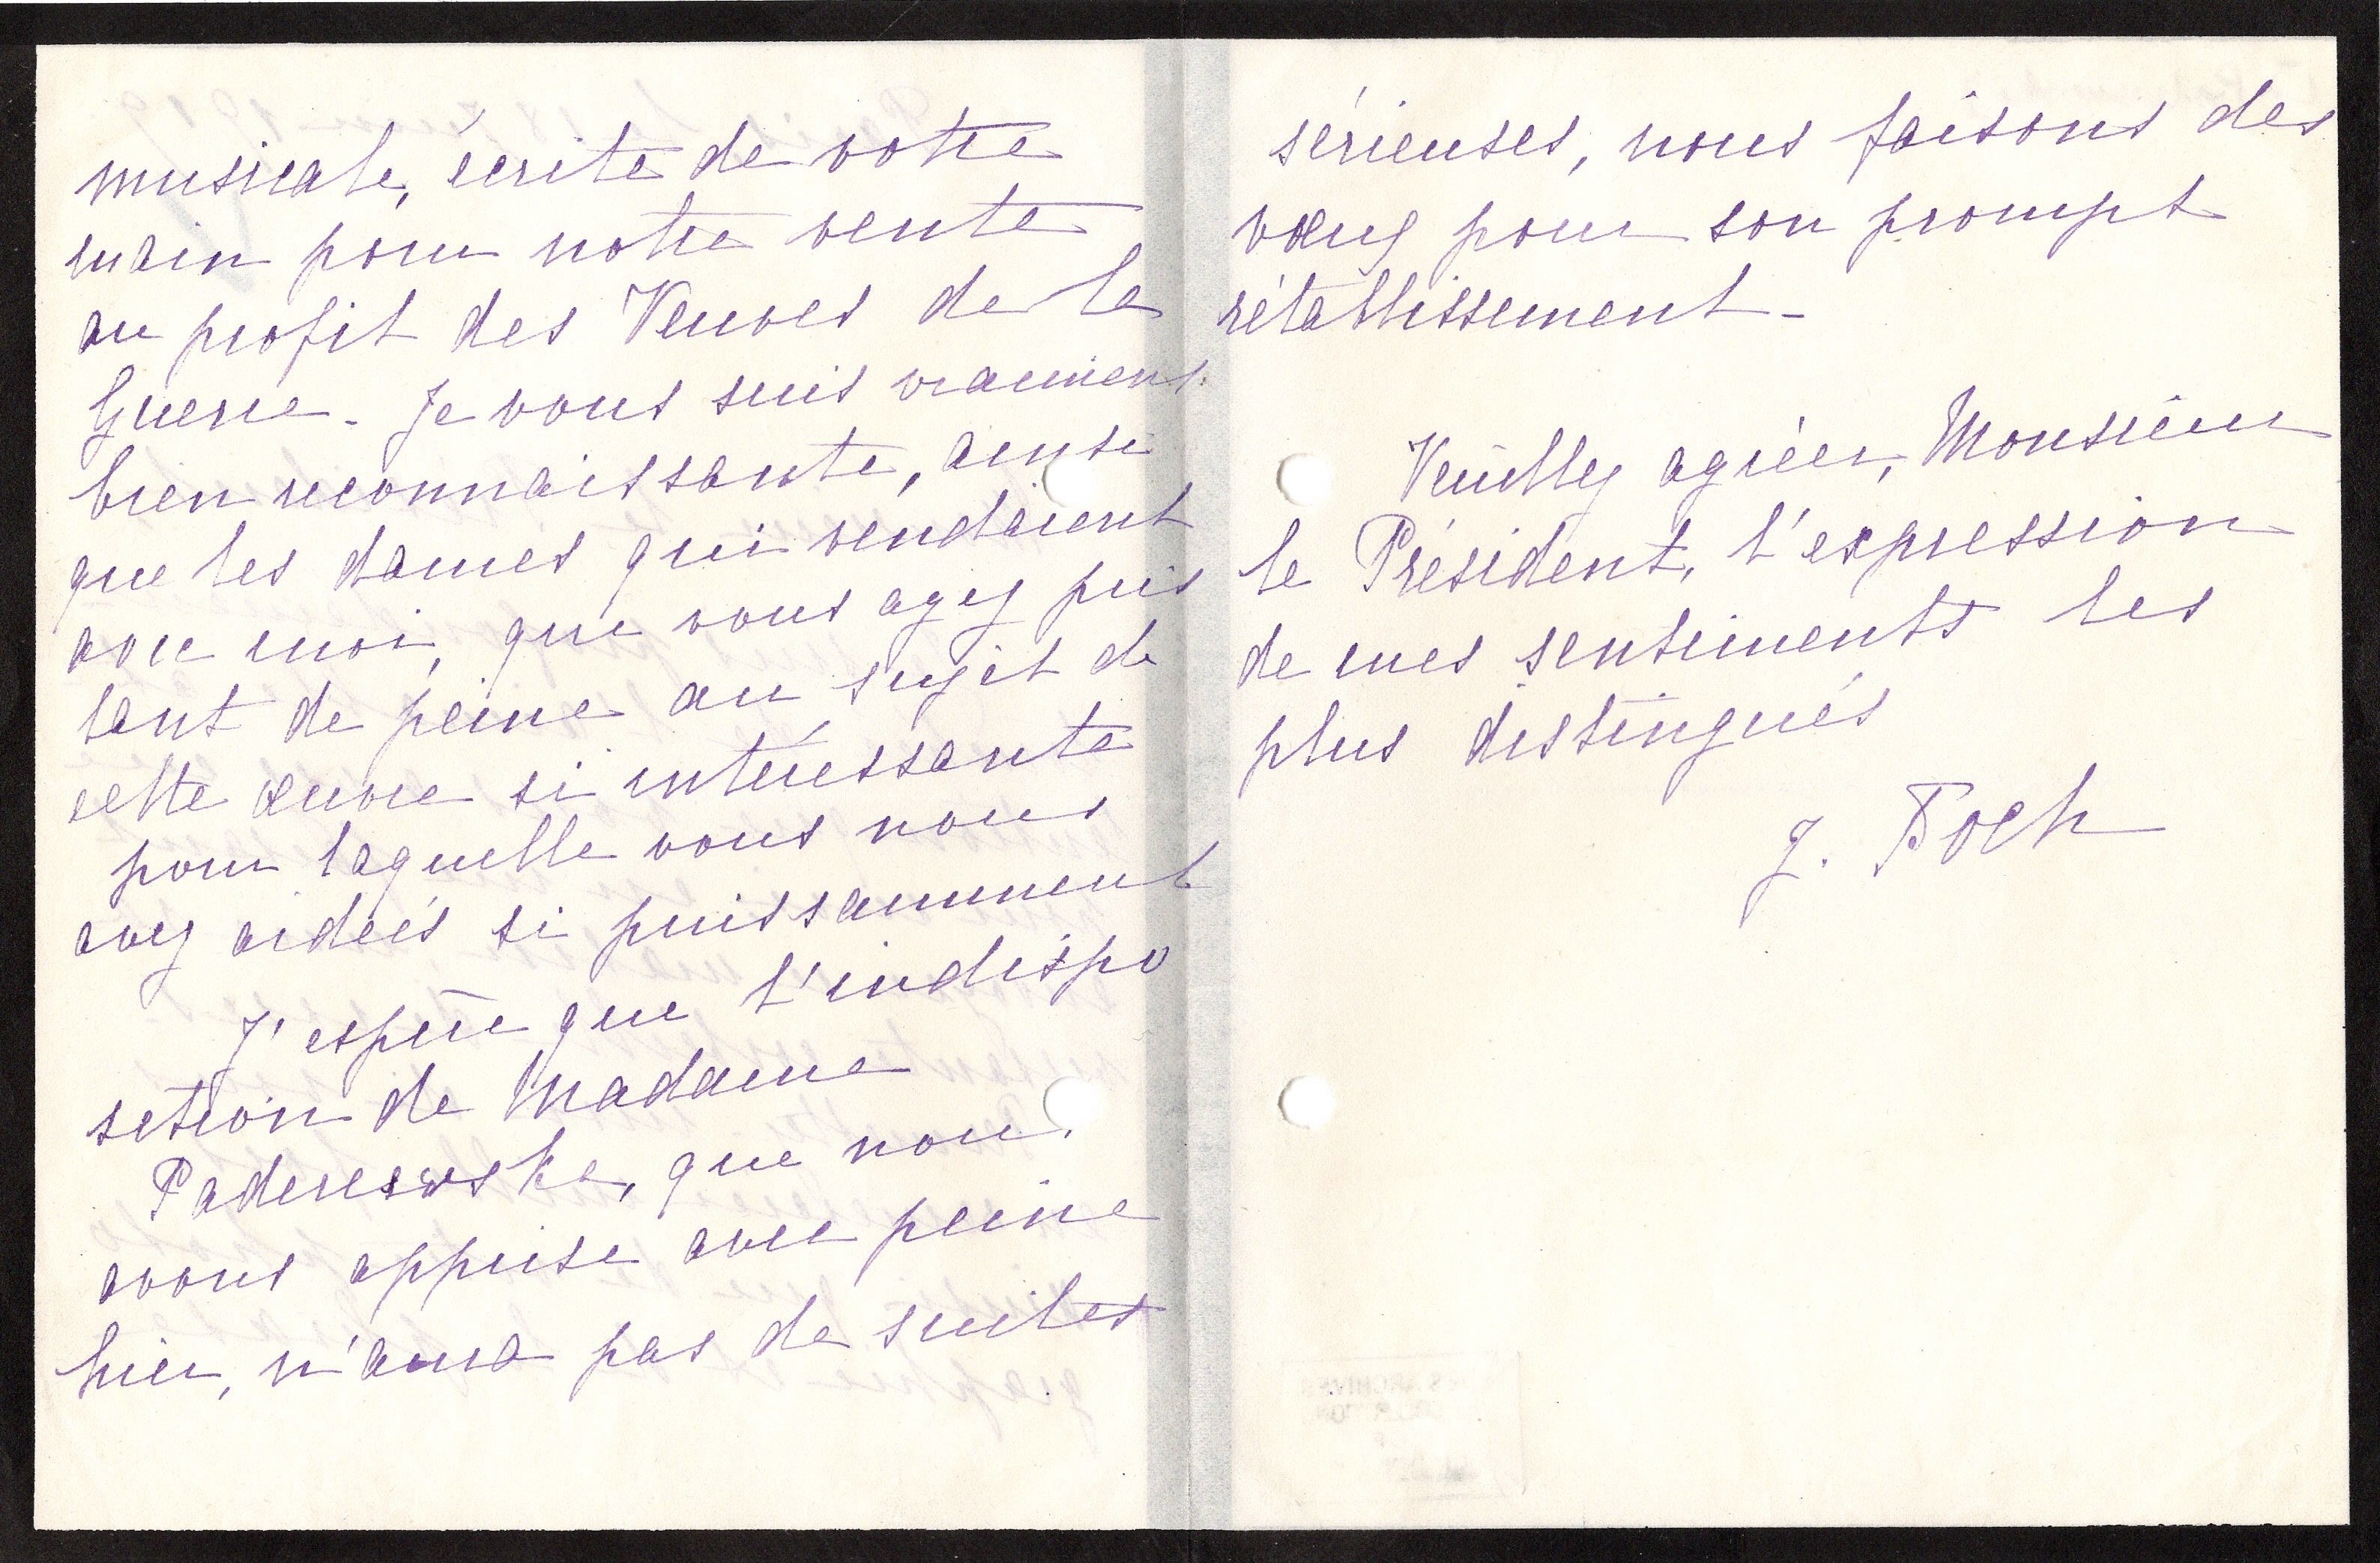 musicale, écrite de votre
main pour notre vente
au profit des Veuves de la
Guerre - Je vous suis vraiment
bien reconnaissante, ainsi
que les dames qui vendaient
avec moi, que vous ayez pris
tant de peine au sujet de
cette œuvre si intéressante
pour laquelle vous nous
avez aidées si puissamment
J'espère que l'indispo
sition de Madame
Paderewska, que nous
avons apprise avec peine
hier, n'aura pas de suites
sérieuses, nous faisons des
vœux pour son prompt
rétablissement -
Veuillez agréer, Monsieur
le Président, l'expression
de mes sentiments les
plus distingués
J. Foch